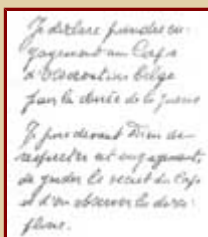 Je déclare prendre en-
gagement au Corps
d'Observation belge
pour la durée de la guerre
Je jure devant Dieu de
respecter cet engagement,
de garder le secret du Corps
et d'en observer la disci-
pline.